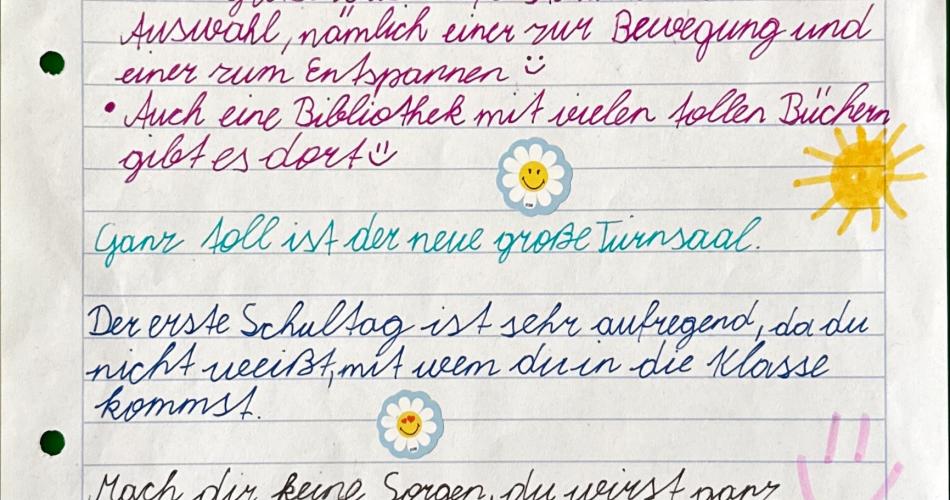 Auswahl, nämlich einer zur Bewegung und
einer zum Entspannen
• Auch eine Bibliothek mit vielen tollen Büchern
gibt es dort
Ganz toll ist der neue große Turnsaal.
Der erste Schultag ist sehr aufregend, da du
nicht weißt, mit wem du in die Klasse
kommst.
Mach dir keine Sorgen, du wirst ganz